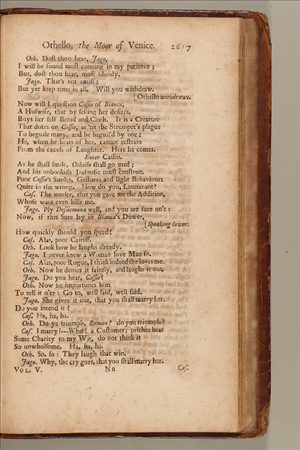 Othello, the Moor of Venice. 2617
Oth. Dost thou hear, Jago,
I will be found most cunning in my patience;
But, dost thou hear, most bloody.
Jago. That's not amiss;
But yet keep time in all. Will you withdraw.
[Othello withdraws.
Now will I question Cassio of Bianca,
A Huswife, that by selling her desires,
Buys her self Bread and Cloth. It is a Creature
That dotes on Cassio, as 'tis the Strumpet's plague
To beguile many, and be beguil'd by one;
He, when he hears of her, cannot refrain
From the excess of Laughter. Here he comes.
Enter Cassio.
As he shall smile, Othello shall go mad;
And his unbookish Jealousie must construe
Poor Cassio's Smiles, Gestures, and light Behaviours
Quite in the wrong. How do you, Lieutenant?
Cas. The worser, that you gave me the Addition,
Whose want even kills me.
Jago. Ply Desdemona well, and you are sure on't:
Now, if this Sute lay in Bianca's Dower,
[Speaking lower.
How quickly should you speed?
Cas. Alas, poor Caitiff.
Oth. Look how he laughs already.
Jago. I never knew a Woman love Man so.
Cas. Alas, poor Rogue, I think indeed she loves me.
Oth. Now he denies it faintly, and laughs it out.
Jago. Do you hear, Cassio?
Oth. Now he importunes him
To tell it o'er: Go to, well said, well said.
Jago. She gives it out, that you shall marry her.
Do you intend it?
Cas. Ha, ha, ha.
Oth. Do ye triumph, Roman? do you triumph?
Cas. I marry!—What? a Customer; prithee bear
Some Charity to my Wit, do not think it
So unwholsome. Ha, ha, ha.
Oth. So, so: They laugh that win.
Jago. Why, the cry goes, that you shall marry her.
VOL. V. Nn Cas.